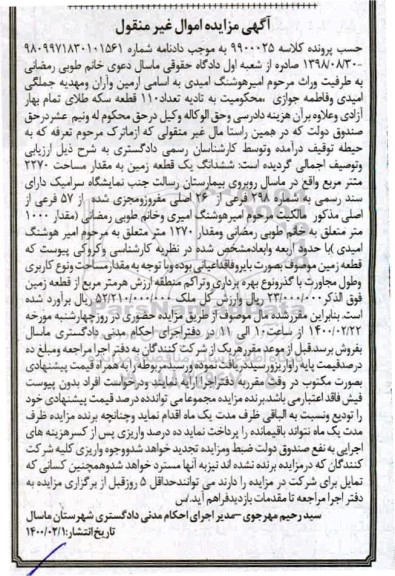 آگهی مزایده اموال غیر منقول
حسب پرونده کلاسه ۹۹۰۰۰۲۵ به موجب دادنامه شماره ۹۸۰۹۹۷۱۸۳۰۱۰۱۵۶۱
-۱۳۹۸/۰۸/۳۰ صادره از شعبه اول دادگاه حقوقی ماسال دعوی خانم طوبی رمضانی
به طرفیت وراث مرحوم امیرهوشنگ امیدی به اسامی آرمین وآران ومهدیه جملگی
امیدی وفاطمه جوازی ،محکومیت به تادیه تعداد۱۱۰ قطعه سکه طلای تمام بهار
آزادی وعلاوه برآن هزینه دادرسی وحق الوکاله وکیل درحق محکوم له ونیم عشردرحق
صندوق دولت که در همین راستا مال غیر منقولی که ازماترک مرحوم تعرفه که به
حیطه توقیف درآمده وتوسط کارشناسان رسمی دادگستری به شرح ذیل ارزیابی
وتوصیف اجمالی گردیده است: ششدانگ یک قطعه زمین به مقدار مساحت ۲۲۷۰
متر مربع واقع در ماسال روبروی بیمارستان رسالت جنب نمایشگاه سرامیک دارای
سند رسمی به شماره ۲۹۸ فرعی از ۲۶ اصلی مفروزومجزی شده از ۵۷ فرعی از
اصلی مذکور مالکیت مرحوم امیرهوشنگ امیری وخانم طوبی رمضانی (مقدار ۱۰۰۰
متر متعلق به خانم طوبی رمضانی ومقدار ۱۲۷۰ متر متعلق به مرحوم امیر هوشنگ
امیدی )با حدود اربعه وابعادمشخص شده در نظریه کارشناسی وکروکی پیوست که
قطعه زمین موصوف بصورت بایروفاقداعیانی بوده وبا توجه به مقدارمساحت ونوع کاربری
وطول مجاورت با گذرونوع بهره برداری وتراکم منطقه ارزش هرمتر مربع از قطعه زمین
فوق الذکر۲۳/۰۰۰/۰۰۰ ریال وارزش کل ملک ۵۲/۲۱۰/۰۰۰/۰۰۰ ریال برآورد شده
است.بنابراین مقررشده مال موصوف از طریق مزایده حضوری در روزچهارشنبه مورخه
۱۴۰۰/۰۲/۲۲ از ساعت۱۰ الی ۱۱ در دفتراجرای احکام مدنی دادگستری ماسال
بفروش برسد.قبل از موعد مقررهریک از شرکت کنندگان به دفتر اجرا مراجعه ومبلغ ده
درصدقیمت پایه راواریزورسیددریافت نموده ورسیدمربوطه رابه همراه قیمت پیشنهادی
بصورت مکتوب در وقت مقرربه دفتراجرا ارایه نمایند ودرخواست افراد بدون پیوست
فیش فاقد اعتبارمی باشد.برنده مزایده مجموعا می تواندده درصد قیمت پیشنهادی خود
را تودیع ونسبت به الباقی ظرف مدت یک ماه اقدام نماید وچنانچه برنده مزایده ظرف
مدت یک ماه نتواند باقیمانده را پرداخت نماید ده درصد واریزی پس از کسرهزینه های
اجرایی به نفع صندوق دولت ضبط ومزایده تجدید خواهد شدووجوه واریزی کلیه شرکت
کنندگان که درمزایده برنده نشده اند نیزبه آنها مسترد خواهد شدوهمچنین کسانی که
تمایل برای شرکت در مزایده را دارند می توانندحداقل ۵ روزقبل از برگزاری مزایده به
دفتر اجرا مراجعه تا مقدمات بازدیدفراهم آید.س
سید رحیم مهرجوی –مدیر اجرای احکام مدنی دادگستری شهرستان ماسال
تاریخ انتشار:۱۴۰۰/۰۲/۱